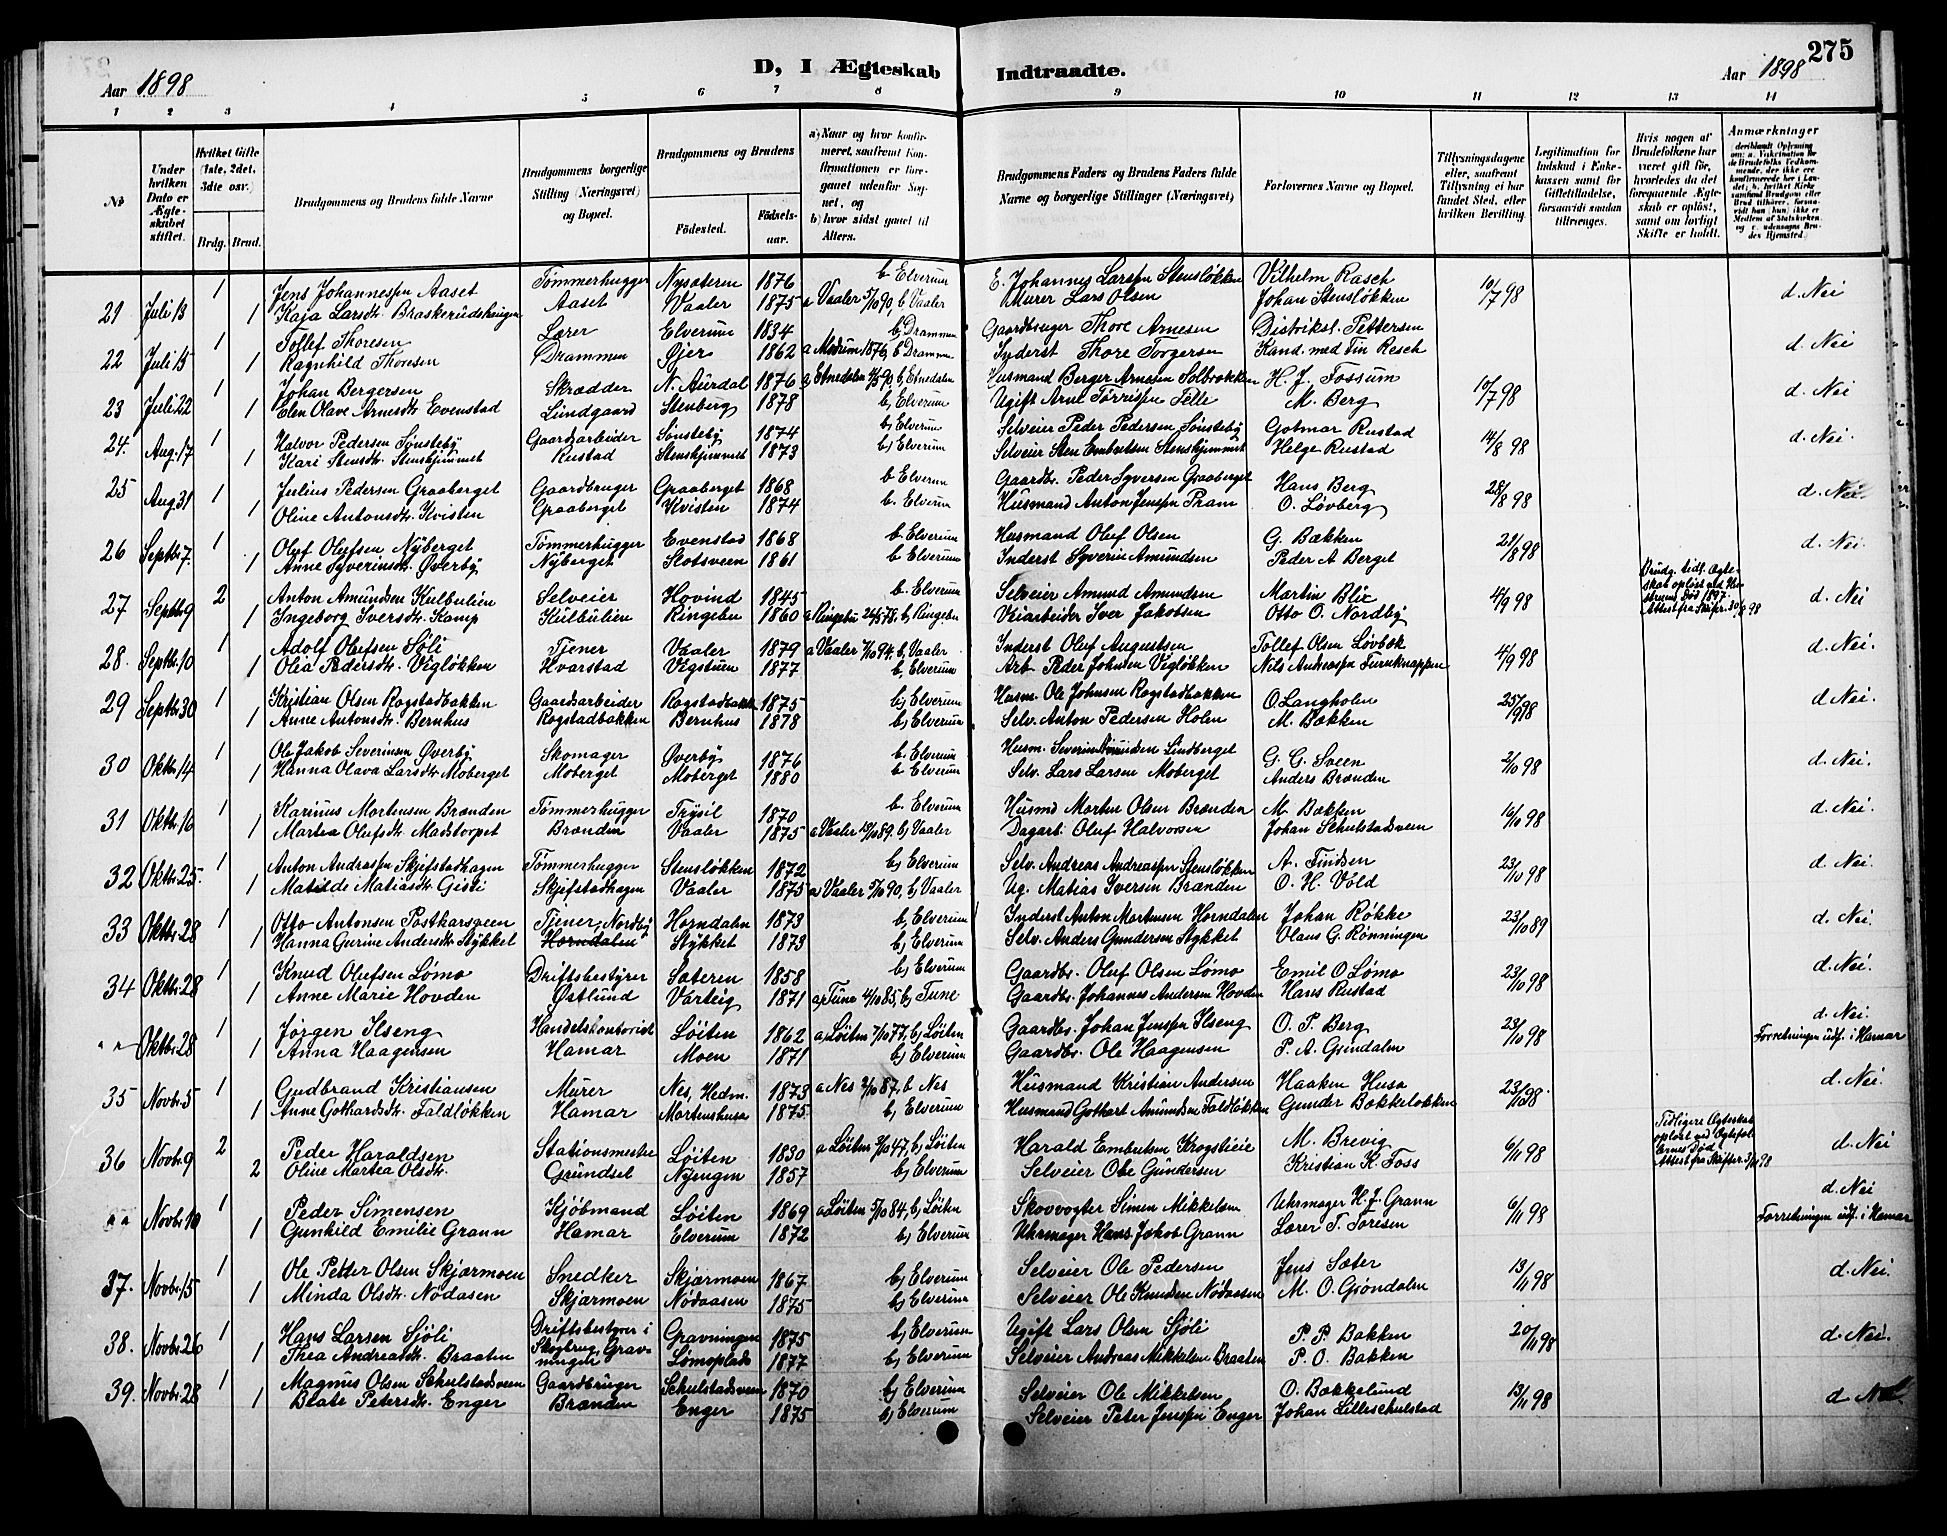 275
Aar 1898
D, I Ægteskab Indtraadte.
Aar 1898
1 2 3 4 5 6 7 8 9 10 11 12 13 14
No
Under hvilken Dato er Ægteskabet stiftet.
Hvilket Gifte (1ste, 2det, 3die osv.)
Brdg. Brud.
Brudgommens og Brudens fulde Navne
Brudgommens borgerlige Stilling (Næringsvei) og Bopæl.
Brudgommens og Brudens
Fødested. Fødselsaar.
a) Naar og hvor konfirmeret, saafremt Konfirmationen er foregaaet udenfor Sognet, og
b) hvor sidst gaaet til Alters.
Brudgommens Faders og Brudens Faders fulde Navne og borgerlige Stillinger (Næringsvei)
Forlovernes Navne og Bopæl.
Tillysningsdagene eller, saafremt Tillysning ei har fundet Sted, efter hvilken Bevilling.
Legitimation for Indskud i Enkekassen samt for Giftetilladelse, forsaavidt saadan tiltrænges.
Hvis nogen af Brudefolkene har været gift før, hvorledes da det foregaaende Ægteskab er opløst, samt om lovligt Skifte er holdt.
Anmærkninger
21 Juli 13 1 Jens Johannessen Aaset Tømmerhugger Nysæteren 1876 b. Elverum E. Johannes Larssen Stensløkken Vilhelm Rasch 10/7 98 d. Nei
1 Kaja Larsdtr. Braskerudshaugen Aaset Vaaler 1875 a Vaaler 5/10 90, b. Vaaler Murer Lars Olsen Johan Stensløkken
22 Juli 15 1 Tollef Thoresen Lærer Elverum 1834 b, Drammen Gaardbruger Thore Arnesen Distriksl. Pettersen d. Nei
1 Ragnhild Thoresen Drammen Øjer 1862 a Modum 1876, b Drammen Inderst Thore Torgersen Kand. med Tin Resch
23 Juli 22 1 Johan Bergersen Skrædder N. Aurdal 1876 b, Etnedalen Husmand Berger Arnesen Solbrækken H. J. Fossum 10/7 98 d. Nei
1 Elen Olave Arnesdtr. Evenstad Lundgaard Stenberg 1878 b, Elverum Ugift Arne Torrissen Telle M. Berg
24. Aug. 17 1 Halvor Pedersen Sønsteby Gaardsarbeider Sønsteby 1874 b, Elverum Selveier Peder Pedersen Sønsteby Gotmar Rustad 14/8 98 d. Nei.
1 Kari Stensdtr. Stenskjimmet Rustad Stenskjimmet 1873 b, Elverum Selveier Sten Embretsen Stenskjimmet Helge Rustad
25 Aug 31 1 Julius Pedersen Graaberget Gaardbruger Graaberget 1868 b Elverum Gaardb. Peder Syversen Graaberget Hans Berg 28/8 98 d. Nei.
1 Oline Antonsdtr. Kvisten Graaberget Kvisten 1874 b. Elverum Husmand Anton Jenssen Pram O. Løvberg
26 Septbr 7. 1 Oluf Olufsen Nyberget Tømmerhugger Evenstad 1868 b Elverum Husmand Oluf Olsen G. Bækken 21/8 98 d. Nei.
1 Anne Syverinsdtr. Øverby Nyberget Slotsveen 1861 b Elverum Inderst Syverin Amundsen Peder A Berget
27 Septbr 9 2 Anton Amundsen Kulbulien Selveier Hovind 1845 b. Elverum Selveier Amund Amundsen Martin Blix 4/9 98 Brudg. tidl. Ægteskab opløst ved Hustruens Død 1897. Attest fra Skifter. 30/8 98 d. Nei
1 Ingeborg Iversdtr. Kamp Kulbulien Ringebu 1860 a Ringebu 26/5 78. b, Ringebu Veiarbeider Iver Jakobsen Otto O. Nordby
28. Septbr. 10 1 Adolf Olufsen Søli Tjener Vaaler 1879 a Vaaler 7/10 94. b, Vaaler Inderst Oluf Augustsen Tollef Olsen Løvbæk 4/9 98 d. Nei.
1 Olia Pedersdtr. Vigløkken Hvarstad Vigstuen 1877 b, Elverum Arb. Peder Johnsen Vigløkken Nils Andreassen Furuknappen
29 Septbr 30 1 Kristian Olsen Rogstadbakken Gaardsarbeider Rogstadbakken 1875 b, Elverum Husm. Ole Johnsen Rogstadbakken O. Langholen 25/9 98 d. Nei.
1 Anne Antonsdtr. Bernhus Rogstadbakken Bernhus 1878 b, Elverum Selv. Anton Pedersen Holen M. Bækken
30 Oktbr 14 1 Ole Jakob Severinsen Øverby Skomager Øverby 1876 b. Elverum Husm. Severin Amundsen Lindberget G. G. Sveen 2/10 98 d. Nei.
1 Hanna Olava Larsdtr. Moberget Moberget Moberget 1880 b Elverum Selv. Lars Larsen Moberget Anders Brænden
31 Oktbr 16 1 Karinus Mortensen Brænden Tømmerhugger Trysil 1870 b. Elverum Husmd Morten Olsen Brænden M. Bækken 16/10 98 d. Nei.
1 Martea Olufsdtr. Madstorpet Brænden Vaaler 1875 a Vaaler 13/10 89. b, Vaaler Dagarb. Oluf Halvorsen Johan Schulstadsveen
32 Oktbr. 25. 1 Anton Andreassen Skjefstadhagen Tømmerhugger Stensløkken 1872 b, Elverum Selv. Andreas Andreassen Stensløkken A. Findsen 23/10 98 d. Nei.
1 Matilde Matiasdtr. Gisti Skjefstadhagen Vaaler 1875 a Vaaler 5/10 90, b, Vaaler Ug. Matias Iversen Brænden O. H. Vold
33 Oktbr. 28 1 Otto Antonsen Postkarsgeen Tjener, Nordby Horndalen 1873 b, Elverum Inderst Anton Mortensen Horndalen Johan Røkke 23/10 89 d. Nei.
1 Hanna Gurine Andersdtr. Stykket Horndalen Stykket 1873 b, Elverum Selv. Anders Gundersen Stykket Olaus G. Rønningen
34 Oktbr. 28 1 Knud Olufsen Lømo Driftsbestyrer Sæteren 1858 b, Elverum Gaardbr. Oluf Olsen Lømo Emil O. Lømo 23/10 98 d. Nei.
1 Anne Marie Hovden Østlund Varteig 1871 a, Tune 4/10 85, b, Tune Gaardbr. Johannes Andersen Hovden Hans Rustad
" " Oktbr. 28 1 Jørgen Ilseng Handelskontorist Løiten 1862 a, Løiten 7/10 77, b, Løiten Gaardbr. Johan Jenssen Ilseng O. P. Berg 23/10 98 d. Nei. Forretningen udf. i Hamar
1 Anna Haagensen Hamar Moen 1871 b, Elverum Gaardbr. Ole Haagensen P. A. Grindalen
35 Novbr. 5 1 Gudbrand Kristiansen Murer Nes, Hedm. 1873 a Nes 2/10 87, b Nes Husmand Kristian Andersen Haaken Husa 23/10 98. d. Nei.
1 Anne Gothardsdtr. Faldløkken Hamar Mortenshusa 1875 b, Elverum Husmand Gothart Amundsen Faldløkken Gunder Bækkeløkken
36 Novbr. 9 2 Peder Haraldsen Stationsmester Løiten 1830 a Løiten 3/10 47, b, Løiten Harald Embretsen Krogstieie M. Brevig 6/11 98 Tidligere Ægteskab opløst ved Ægtefællernes Død Attest fra Skifter. 3/11 98 d. Nei
2 Oline Martea Olsdtr. Grundset Nyengen 1857 b, Elverum Selveier Ole Gundersen Kristian K. Foss
" " Novbr. 10 1 Peder Simensen Kjøbmand Løiten 1869 a Løiten 5/10 84, b, Løiten Skovvogter Simen Mikkelsen Uhrmager H. J. Grann 6/11 98 d. Nei Forretningen udf. i Hamar
1 Gunhild Emilie Grann Hamar Elverum 1872 b, Elverum Uhrmager Hans Jakob Grann Lærer T. Toresen
37. Novbr. 15 1 Ole Petter Olsen Skjærmoen Snedker Skjærmoen 1867 b, Elverum Selveier Ole Pedersen Jens Sæter 13/11 98 d. Nei.
1 Minda Olsdtr. Nødaasen Skjærmoen Nødaasen 1875 b, Elverum Selveier Ole Knudsen Nødaasen M. O. Grøndalen
38. Novbr. 26 1 Hans Larsen Sjøli Driftsbestyrer i Skogbrug, Gravningen Gravningen 1875 b, Elverum Ugift Lars Olsen Sjøli P. P. Bakken 20/11 98 d. Nei.
1 Thea Andreasdtr. Braaten Lømoplads 1877 b, Elverum Selveier Andreas Mikkelsen Braaten P. O. Bakken
39. Novbr. 28 1 Magnus Olsen Schulstadsveen Gaardbruger Schulstadsveen 1870 b, Elverum Selveier Ole Mikkelsen O. Bækkelund 13/11 98 d. Nei.
1 Beate Petersdtr. Enger Brænden Enger 1875 b, Elverum Selveier Peter Jenssen Enger Johan Lilleschulstad